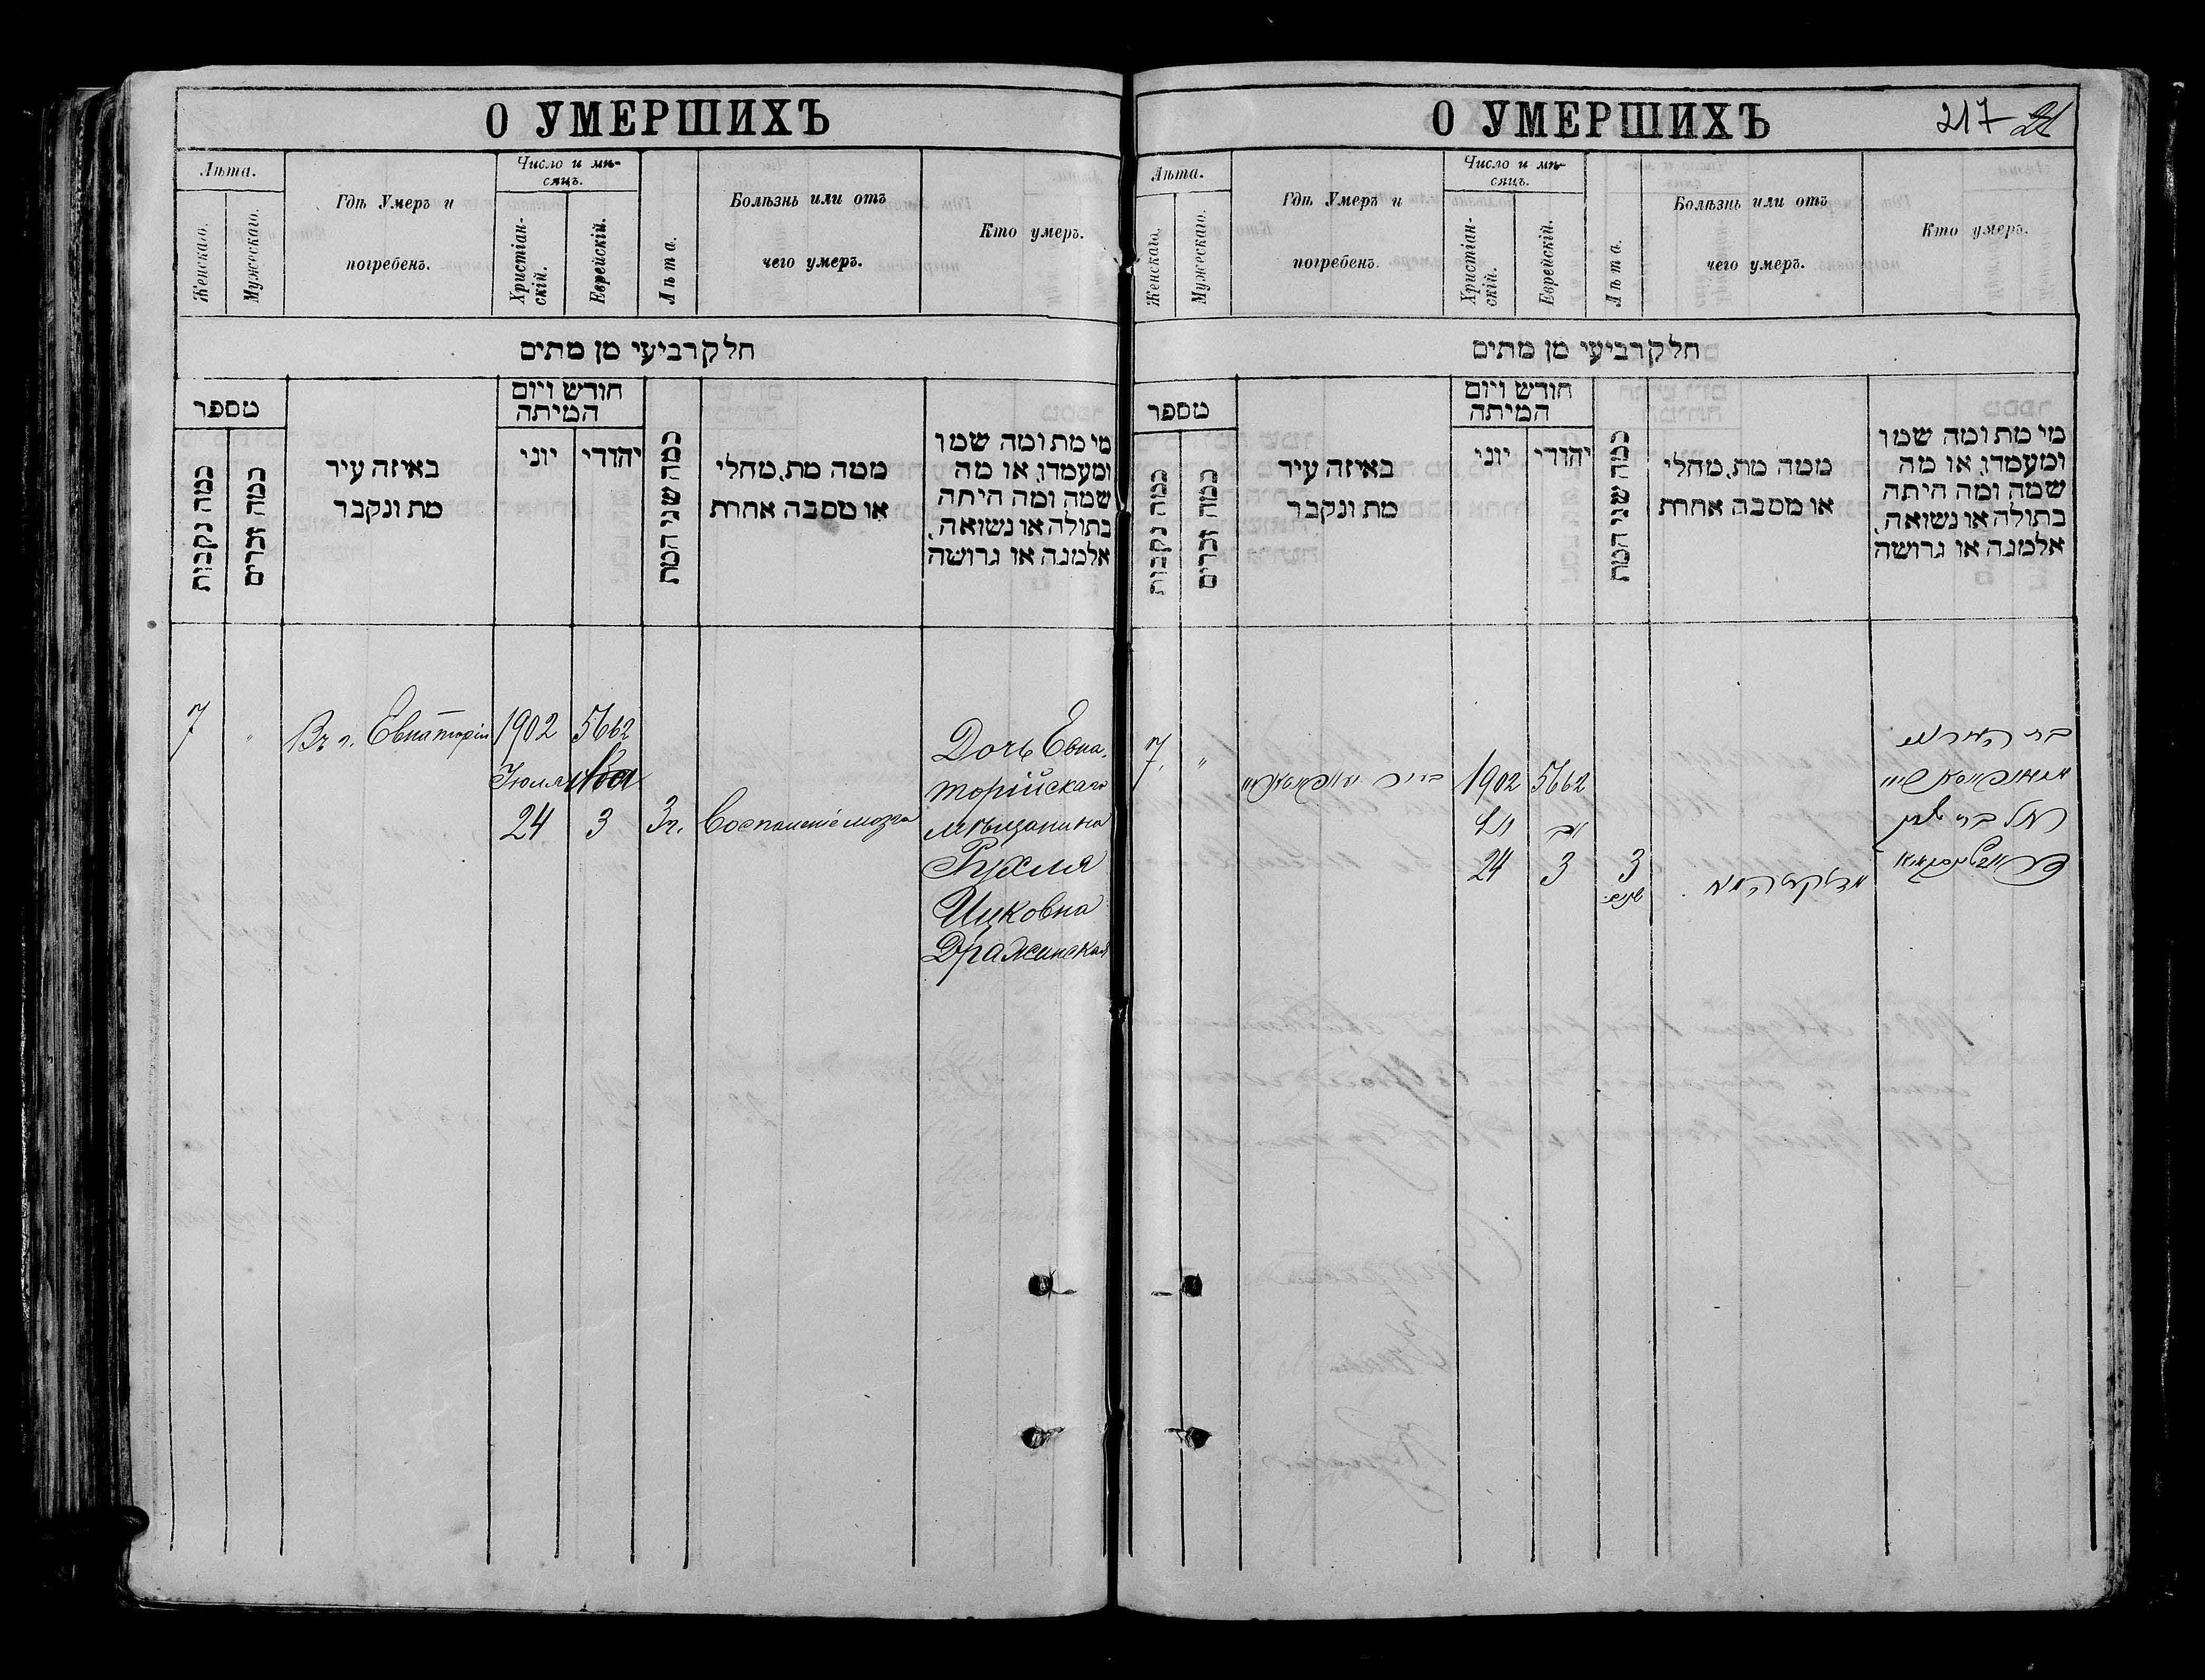 О УМЕРШИХЪ
Лѣта.
Женскаго.
Мужескаго.
Гдѣ Умеръ и
погребенъ.
Число и мѣ-
сяцъ.
Христіан-
скій.
Еврейскій.
Лѣта.
Болѣзнь или отъ
чего умеръ.
Кто умеръ.
חלק רביעי מן מתים
מספר
כמה נקבות
כמה זכרים
באיזה עיר
מת ונקבר
חודש ויום
המיתה
יהודי
יוני
כמה שני המת
ממה מת, מחלי
או מסבה אחרת
מי מת ומה שמו
ומעמדו, או מה
שמה ומה היתה
בתולה או נשואה,
אלמנה או גרושה
7 "
Въ г. Евпаторіи
1902 5662
Іюля Ава
24 3
3 г.
Воспаленіе мозга
Дочь Евпа-
торійскаго
мѣщанина
Рухля
Ицковна
Дражинская
О УМЕРШИХЪ
217
21
Лѣта.
Женскаго.
Мужескаго.
Гдѣ Умеръ и
погребенъ.
Число и мѣ-
сяцъ.
Христіан-
скій.
Еврейскій.
Лѣта.
Болѣзнь или отъ
чего умеръ.
Кто умеръ.
חלק רביעי מן מתים
מספר
כמה נקבות
כמה זכרים
באיזה עיר
מת ונקבר
חודש ויום
המיתה
יהודי
יוני
כמה שני המת
ממה מת, מחלי
או מסבה אחרת
מי מת ומה שמו
ומעמדו, או מה
שמה ומה היתה
בתולה או נשואה,
אלמנה או גרושה
7. "
1902 5662
יולי אב
24 3
3
שנים
בת
רחל בת יצחק